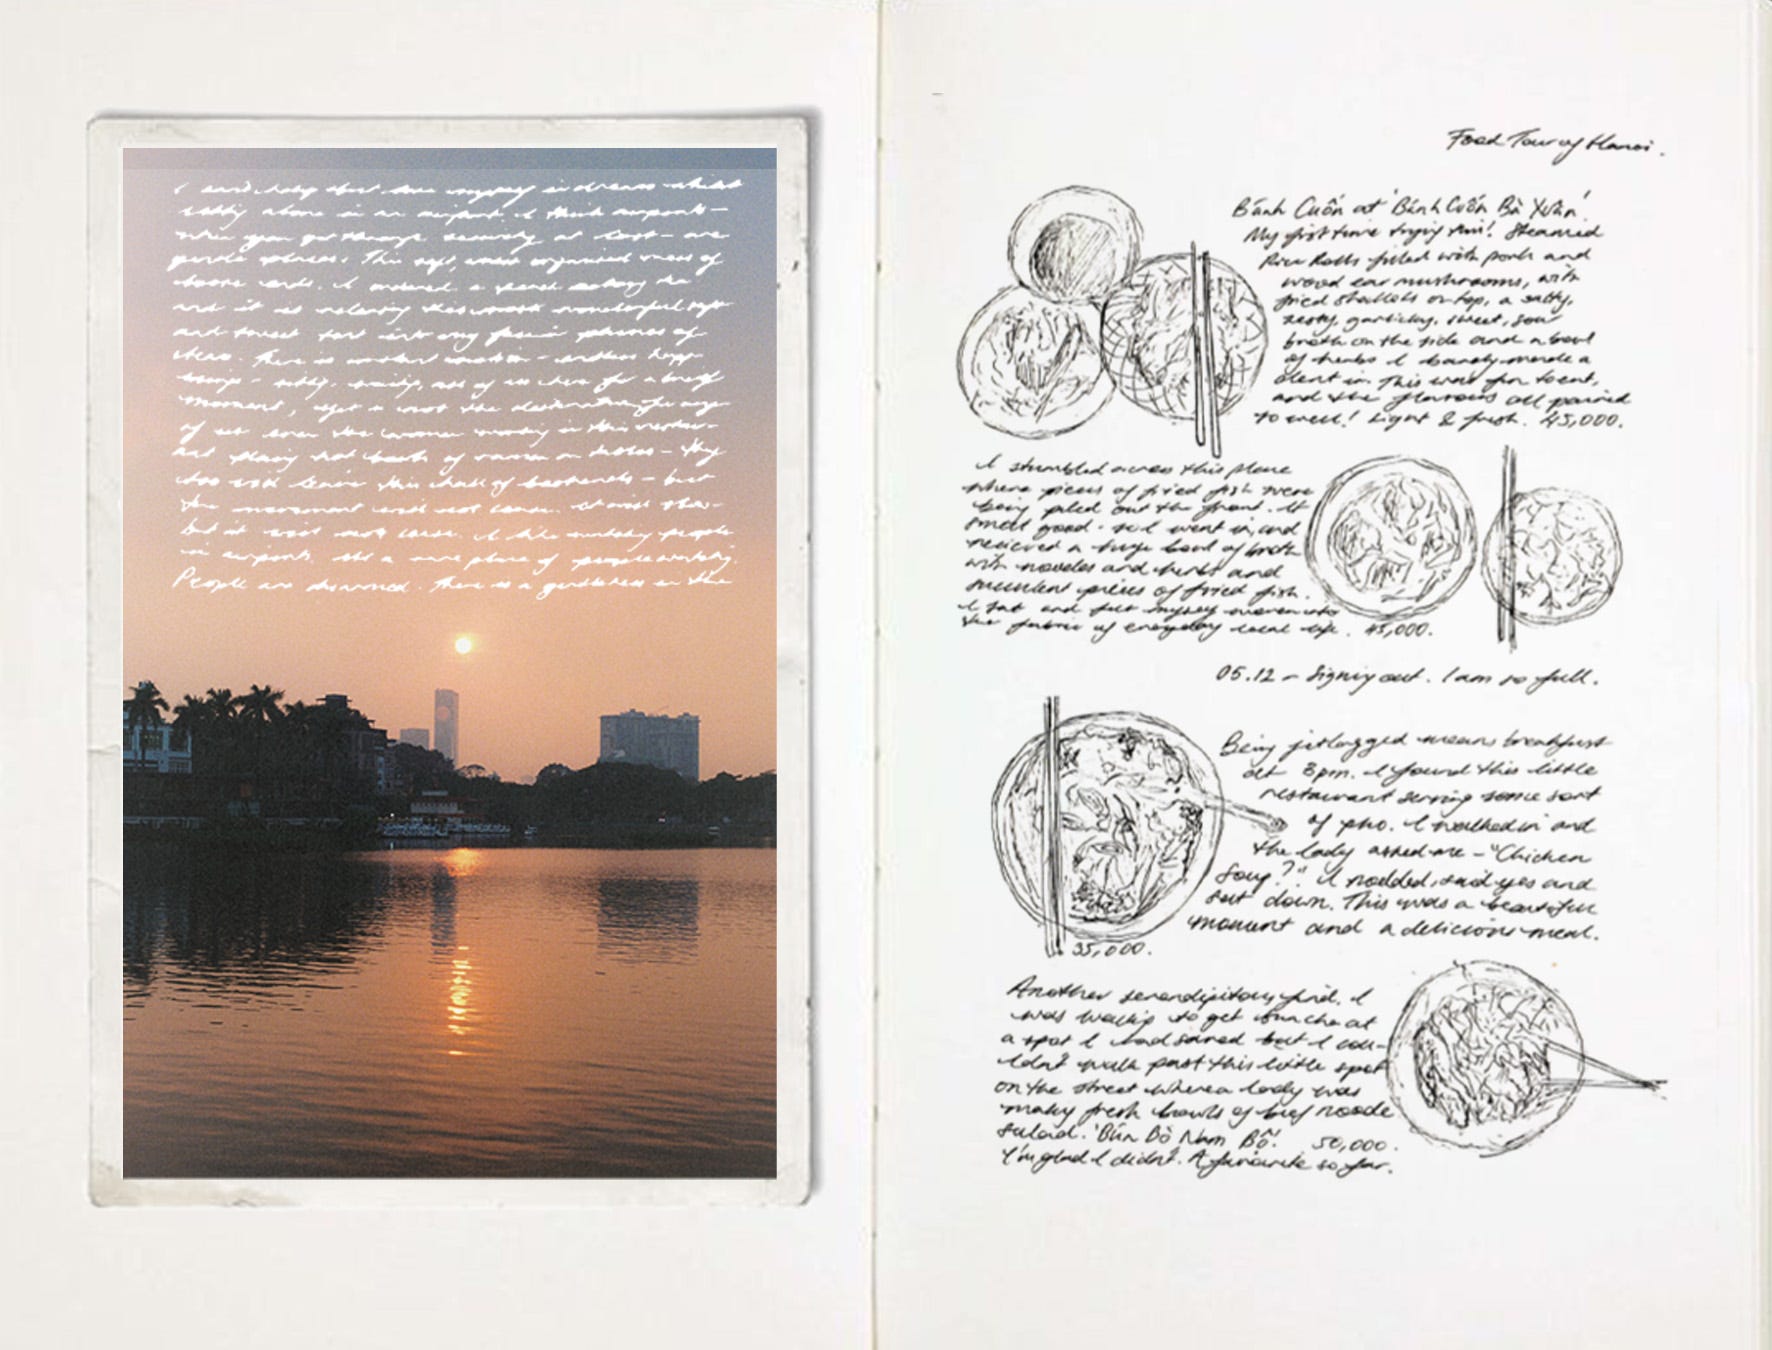 I can't help but
sitting alone in an airport. I think airports –
when you get through security at last – are
gentle places. This soft, organised mess of
loose ends. I ordered a
and it is relaxing this most wonderful soft
and sweet into my
There is constant motion – endless
all of us here for a brief
moment, yet not the destination for any
of us even the women working in this restau-
ant placing hot bowls of ramen on tables – they
too will leave this – but
the movement will not cease.
but it will not cease. I like watching people
in airports. It's a rare place of people watching.
People are disarmed. There is a gentleness in the
Food Tour of Hanoi.
Bánh Cuốn at 'Bánh Cuốn Bà Xuân'.
My first time trying this! Steamed
Rice Rolls filled with pork and
wood ear mushrooms, with
fried shallots on top, a salty,
zesty, garlicky, sweet, sour
broth on the side and a bowl
of herbs I barely made a
dent in. This was fun to eat,
and the flavours all paired
so well! Light & fresh. 45,000.
I stumbled across this place
where pieces of fried fish were
being piled out the front. It
smelt good – so I went in, and
recieved a huge bowl of broth
with noodles and herbs and
succulent pieces of fried fish.
I sat and felt myself woven into
the fabric of everyday local life. 45,000.
05.12 – Signing out. I am so full.
Being jetlagged means breakfast
at 3pm. I found this little
restaurant serving some sort
of pho. I walked in and
the lady asked me – "Chicken
Soup?" I nodded, said yes and
sat down. This was a beautiful
moment and a delicious meal.
35,000.
Another serendipitous find. I
was walking to get bun cha at
a spot I had saved but I cou-
ldn't walk past this little spot
on the street where a lady was
making fresh bowls of beef noodle
salad. 'Bún Bò Nam Bộ'. 50,000.
I'm glad I didn't. A favourite so far.